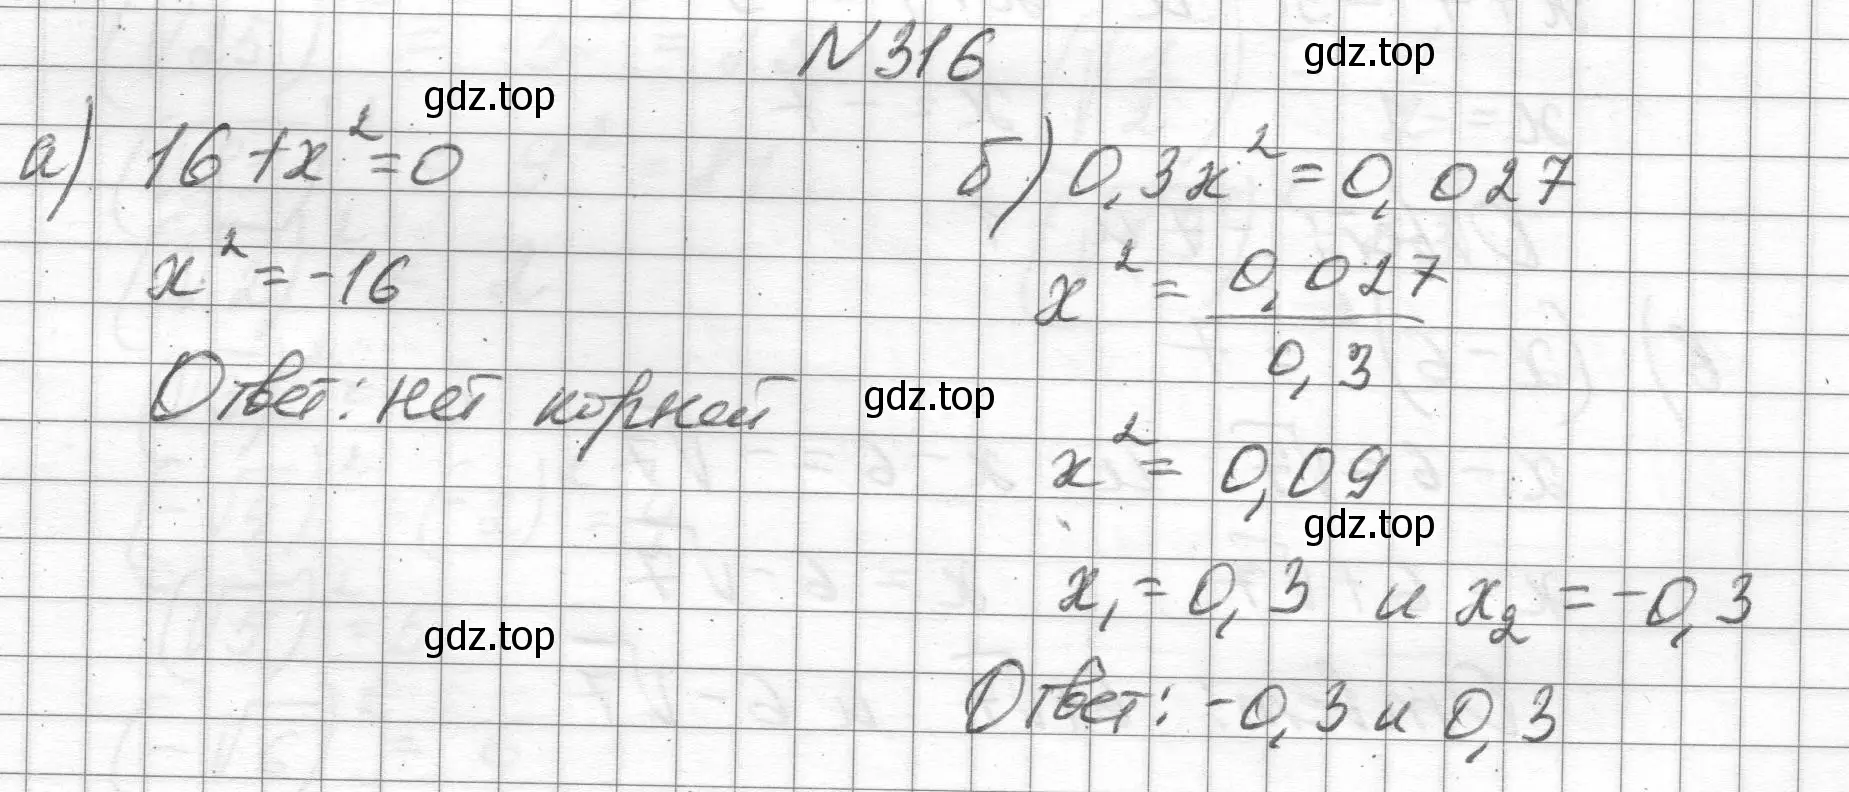 N 316
gdz.top
gdz.top
а) 16+x²=0
x²=-16
Ответ: нет корней
б) 0,3x²=0,027
x²=0,027/0,3
gdz.top
x²=0,09
gdz.top
x₁=0,3 и x₂=-0,3
gdz.top
Ответ: -0,3 и 0,3